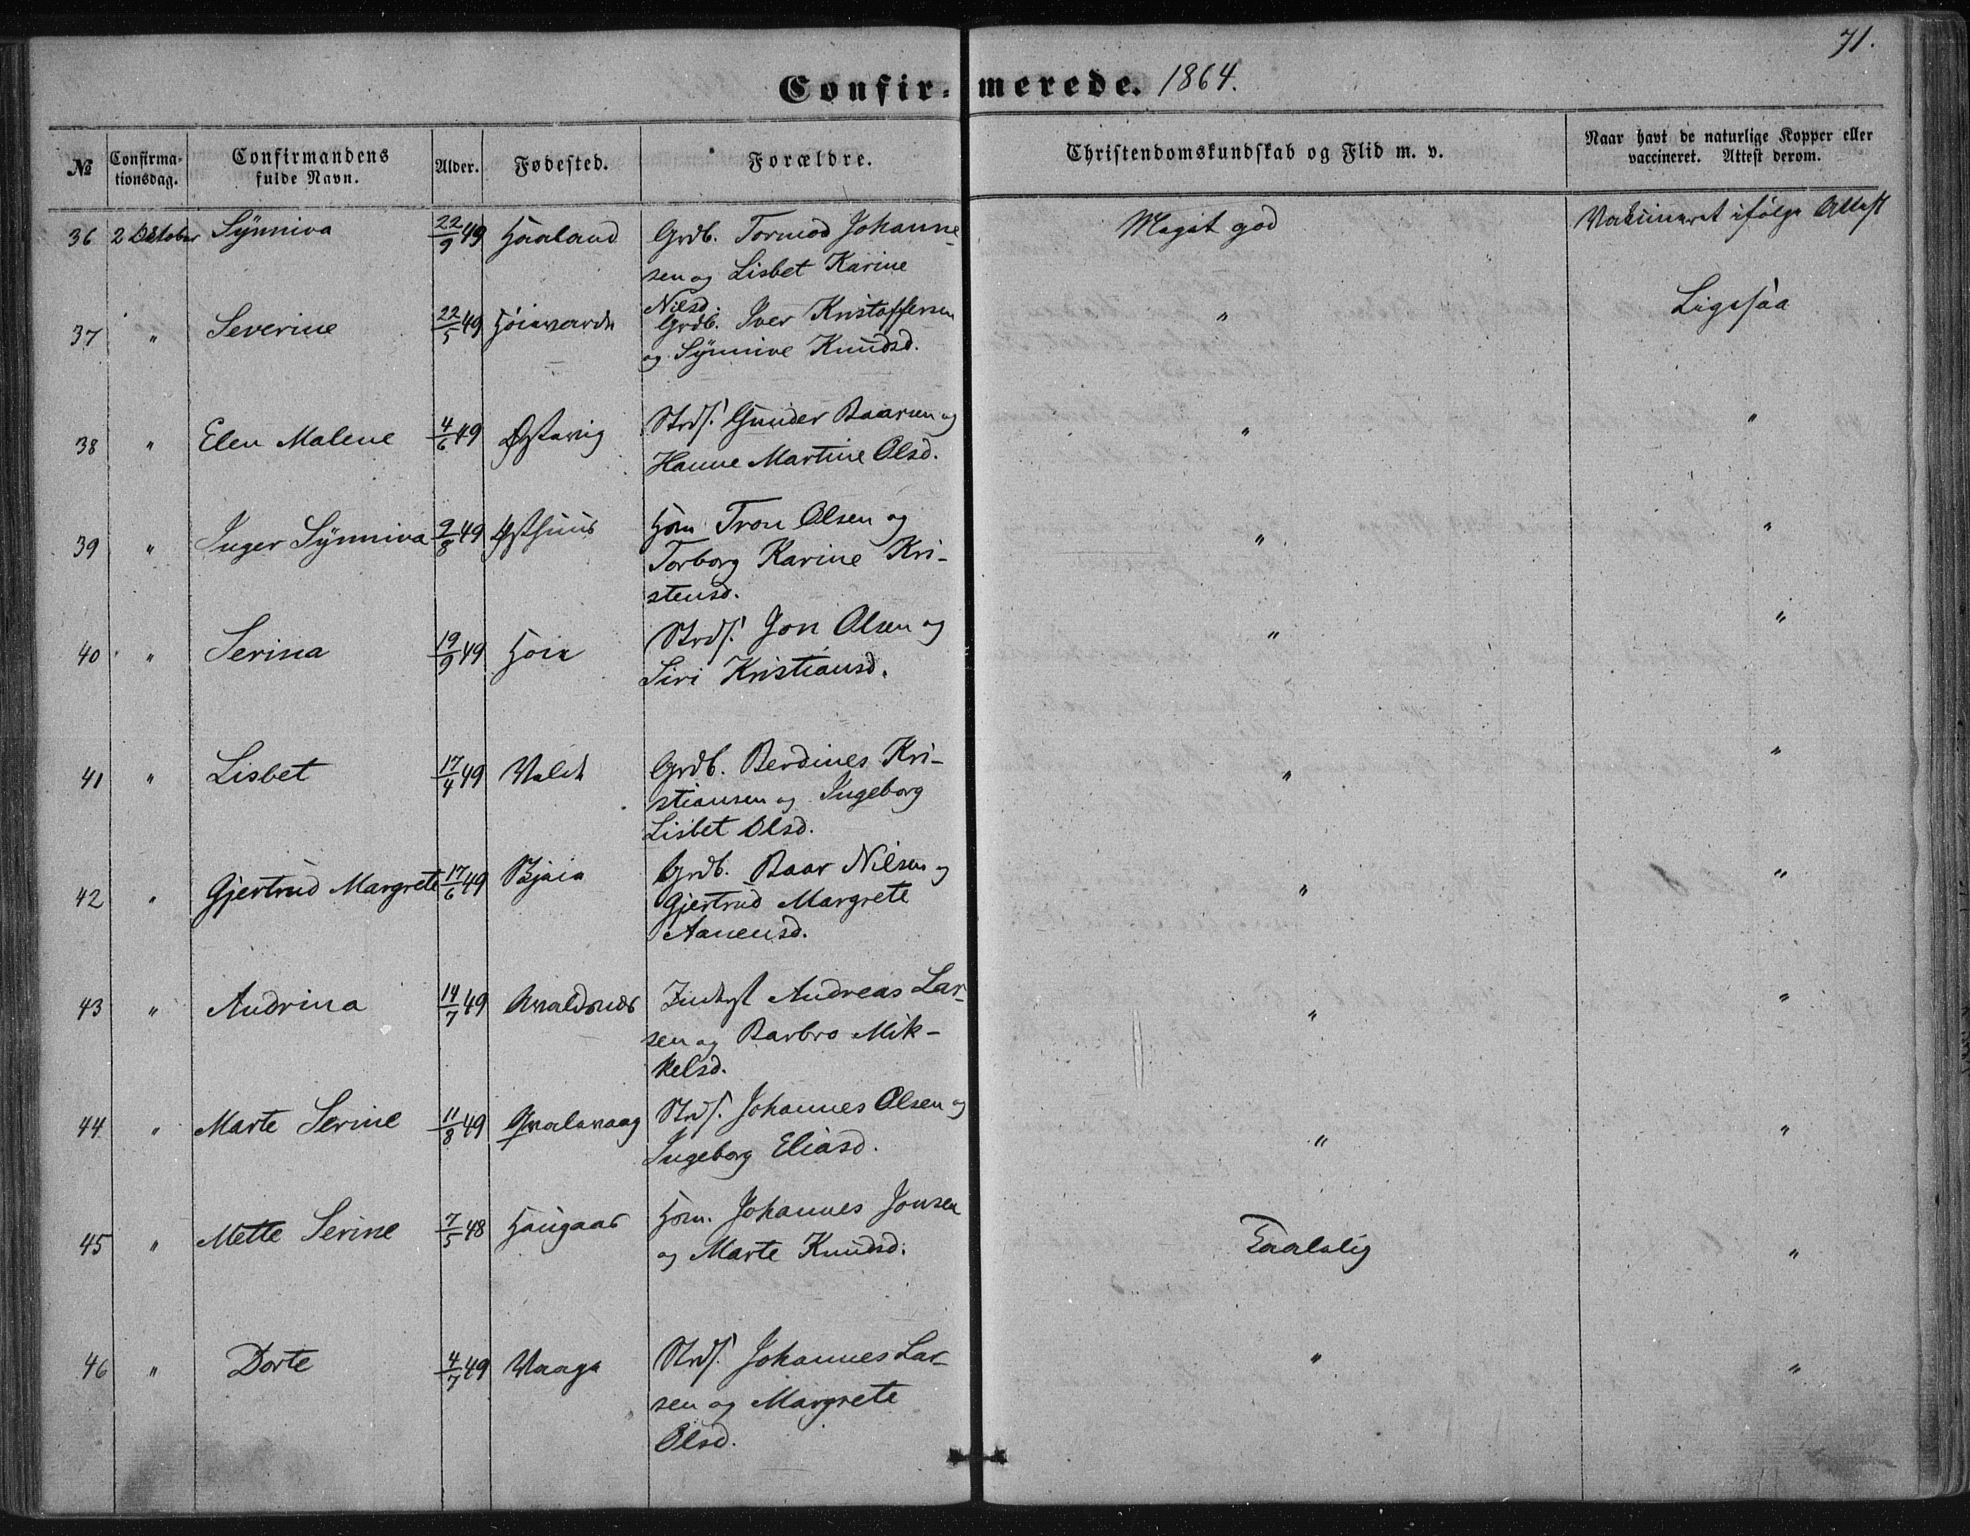 71.
Confir- merede. 1864.
№ Confirma-tionsdag. Confirmandens fulde Navn. Alder. Fødested. Forældre. Christendomskundskab og Flid m. v. Naar havt de naturlige Kopper eller vaccineret. Attest derom.
36 2 Oktober Synniva 22/9 49 Haaland Grdb. Tormod Johanne- Meget god Vaksineret ifølge Attest
sen og Lisbet Karine
Nilsd.
37 " Severine 22/5 49 Høievarde Grdb. Iver Kristoffersen " Ligesaa
og Synnive Knudsd.
38 " Elen Malene 4/6 49 Østavig Strds. Gunder Baarsen og " "
Hanne Martine Olsd.
39 " Inger Synniva 9/8 49 Østhuus Hom. Tron Olsen og " "
Torborg Karine Kri-
stensd.
40 " Serina 19/9 49 Høie Strds. Jon Olsen og " "
Siri Kristiansd.
41 " Lisbet 17/4 49 Grdb. Berdines Kri- " "
stiansen og Ingeborg
Lisbet Olsd.
42 " Gjertrud Margrete 17/6 49 Bjøie Grdb. Baar Nilsen og " "
Gjertrud Margrete
Aanensd.
43 " Andrina 14/7 49 Avaldsnes Inderst Andreas Lar- " "
sen og Barbro Mik-
kelsd.
44 " Marte Serine 11/8 49 Qvalavaag Strds. Johannes Olsen og " "
Ingeborg Eliasd.
45 " Mette Serine 7/5 48 Haugaas Hom. Johannes Jonsen Taalelig "
og Marte Knudsd.
46 " Dorte 4/7 49 Vaage Strds. Johannes Lar- " "
sen og Margrete
Olsd.